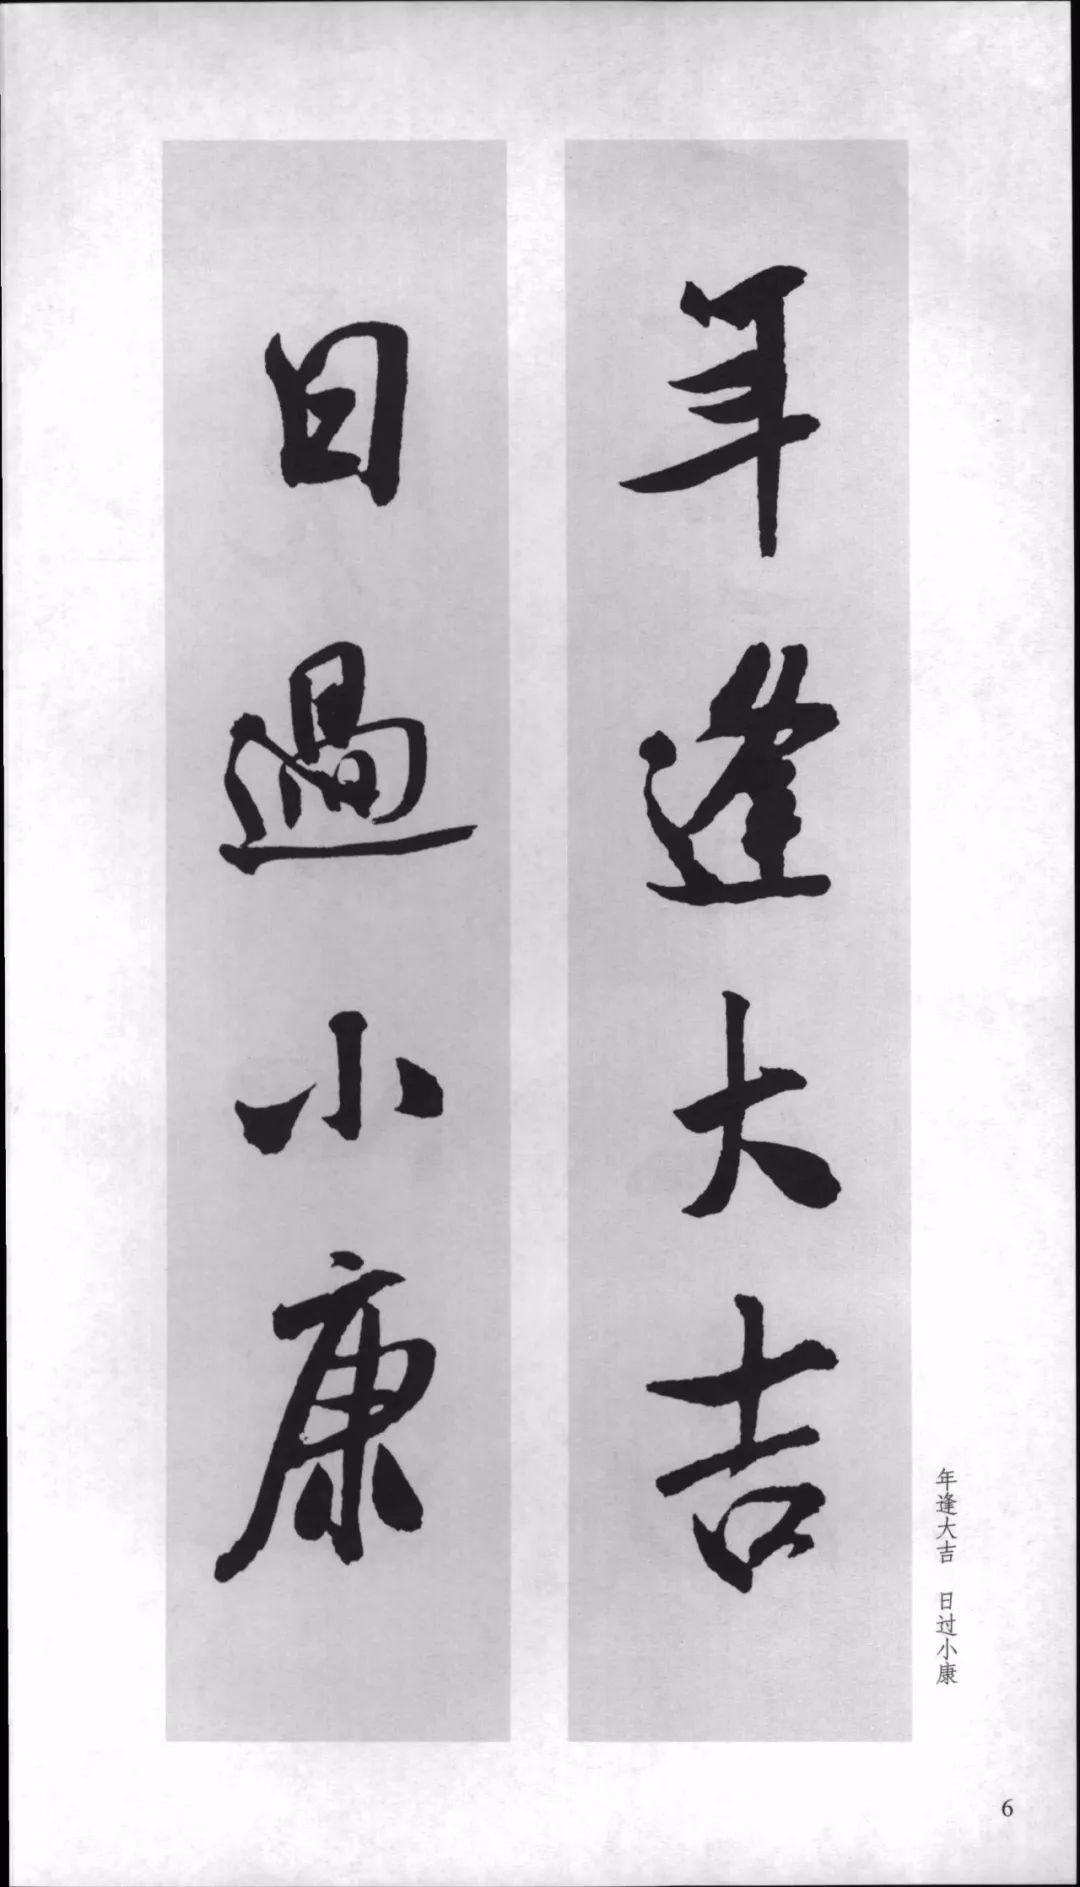 年逢大吉
日過小康
年逢大吉 日过小康
6